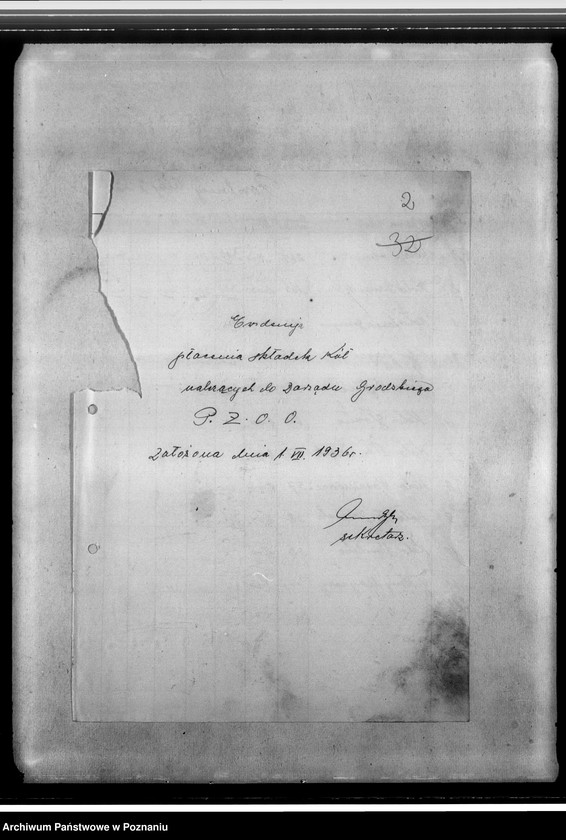 2
32
Evidencja
płacenia składek Kół
należących do Zarządu Grodzkiego
P. Z. O. O.
Założona dnia 1 VII. 1936 r.
sekretarz.
Archiwum Państwowe w Poznaniu